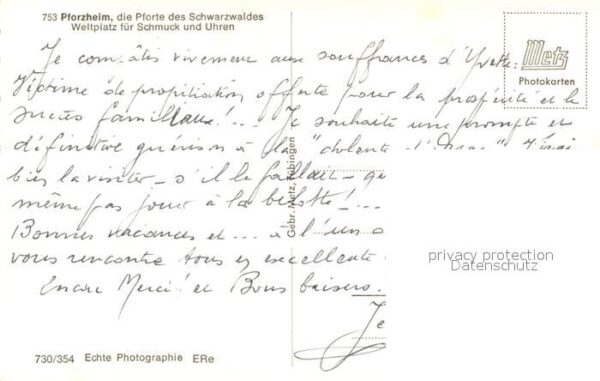 753 Pforzheim, die Pforte des Schwarzwaldes
Weltplatz für Schmuck und Uhren
Metz
Photokarten
Je compatis vivement aux souffrances d'Yvette:
Victime de propitiation offerte pour la prospérité et le
succès familiaux!... Je souhaite une prompte et
définitive guérison à la "dolente
bien la visiter - s'il le fallait -
même pas jouer à la belotte!...
Bonnes vacances et ... à l'un
vous rencontre tous en excellente
Encore Merci! et Bons baisers.
Je
Gebr. Metz, Tübingen
privacy protection
Datenschutz
730/354 Echte Photographie ERe